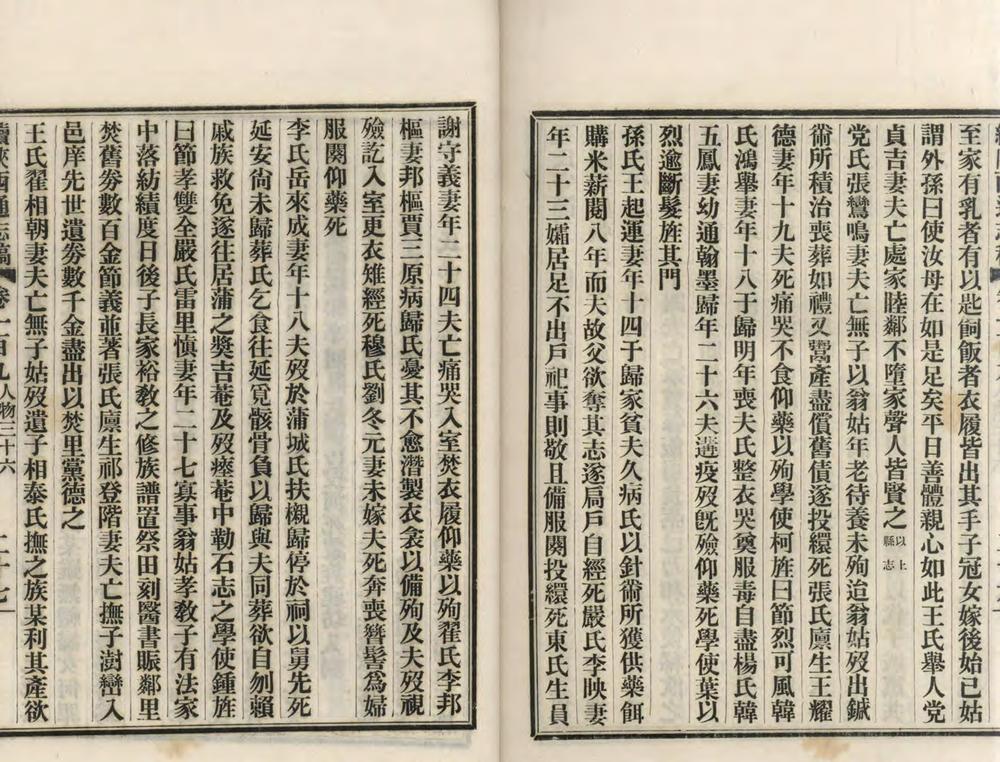 至家有乳者有以匙飼飯者衣履皆出其手子冠女嫁後始已姑
謂外孫曰使汝母在如是足矣平日善體親心如此王氏舉人党
貞吉妻夫亡處家睦鄰不墮家聲人皆賢之以上縣志
党氏張鸞鳴妻夫亡無子以翁姑年老待養未殉迨翁姑歿出鍼
黹所積治喪葬如禮又鬻產盡償舊債遂投繯死張氏廩生王耀
德妻年十九夫死痛哭不食仰藥以殉學使柯旌曰節烈可風韓
氏鴻舉妻年十八于歸明年喪夫氏整衣哭奠服毒自盡楊氏韓
五鳳妻幼通翰墨歸年二十六夫遘疫歿旣殮仰藥死學使葉以
烈逾斷髮旌其門
孫氏王起運妻年十四于歸家貧夫久病氏以針黹所獲供藥餌
購米薪閱八年而夫故父欲奪其志遂扃戶自經死嚴氏李映妻
年二十三孀居足不出戶祀事則敬且備服闋投繯死東氏生員
謝守義妻年二十四夫亡痛哭入室焚衣履仰藥以殉翟氏李邦
樞妻邦樞賈三原病歸氏憂其不愈潛製衣衾以備殉及夫歿視
殮訖入室更衣雉經死穆氏劉冬元妻未嫁夫死奔喪簪髻爲婦
服闋仰藥死
李氏岳來成妻年十八夫歿於蒲城氏扶櫬歸停於祠以舅先死
延安尙未歸葬氏乞食往延覓骸骨負以歸與夫同葬欲自刎賴
戚族救免遂往居蒲之奬吉菴及歿瘞菴中勒石志之學使鍾旌
曰節孝雙全嚴氏雷里愼妻年二十七寡事翁姑孝敎子有法家
中落紡績度日後子長家裕敎之修族譜置祭田刻醫書賑鄰里
焚舊劵數百金節義並著張氏廩生祁登階妻夫亡撫子澍巒入
邑庠先世遺劵數千金盡出以焚里黨德之
王氏翟相朝妻夫亡無子姑歿遺子相泰氏撫之族某利其產欲
續陝西通志稿 卷一百九 人物三十六 二十七